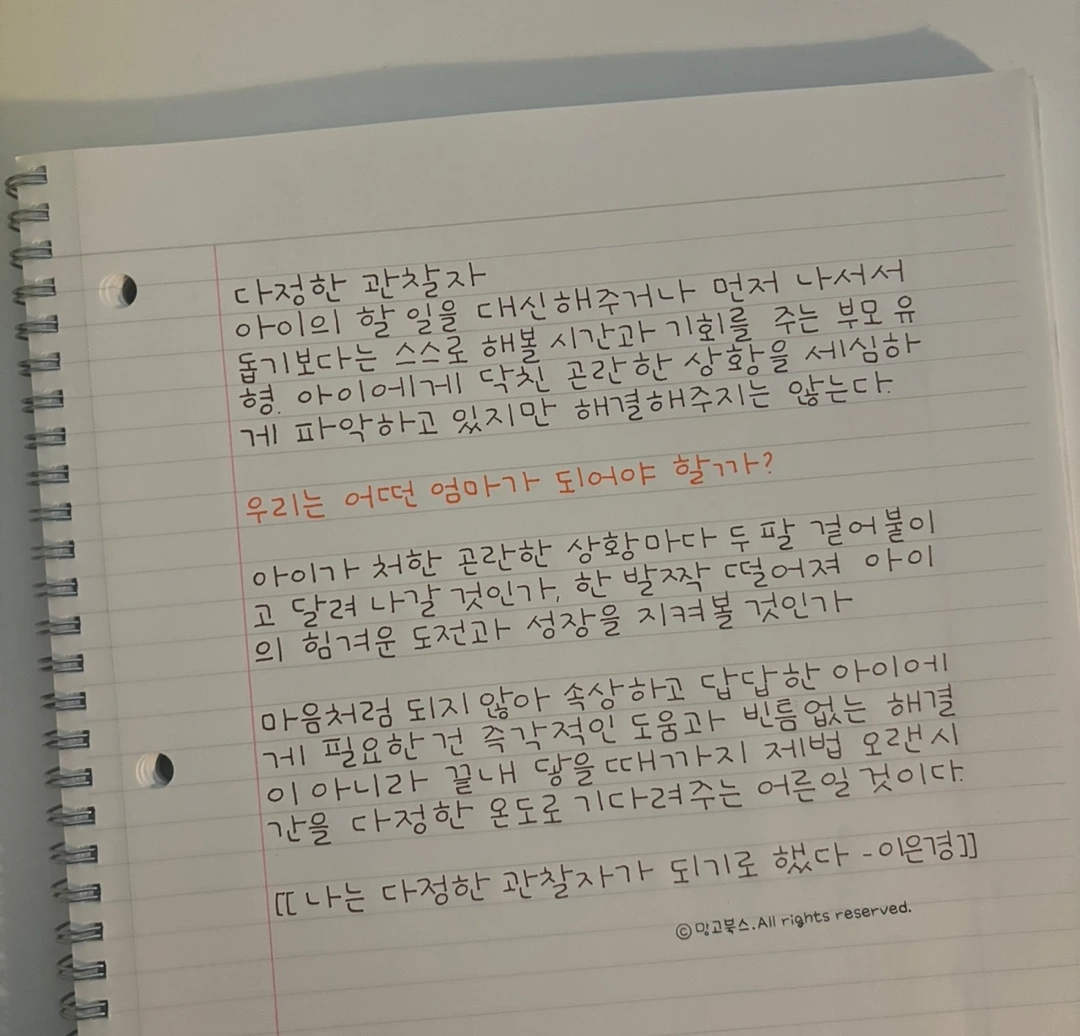 다정한 관찰자
아이의 할 일을 대신해주거나 먼저 나서서
돕기보다는 스스로 해볼 시간과 기회를 주는 부모 유
형. 아이에게 닥친 곤란한 상황을 세심하
게 파악하고 있지만 해결해주지는 않는다.
우리는 어떤 엄마가 되어야 할까?
아이가 처한 곤란한 상황마다 두 팔 걷어붙이
고 달려 나갈 것인가, 한 발짝 떨어져 아이
의 힘겨운 도전과 성장을 지켜볼 것인가
마음처럼 되지 않아 속상하고 답답한 아이에
게 필요한 건 즉각적인 도움과 빈틈없는 해결
이 아니라 끝내 닿을 때까지 제법 오랜 시
간을 다정한 온도로 기다려주는 어른일 것이다.
[[나는 다정한 관찰자가 되기로 했다 -이은경]]
©망고북스.All rights reserved.